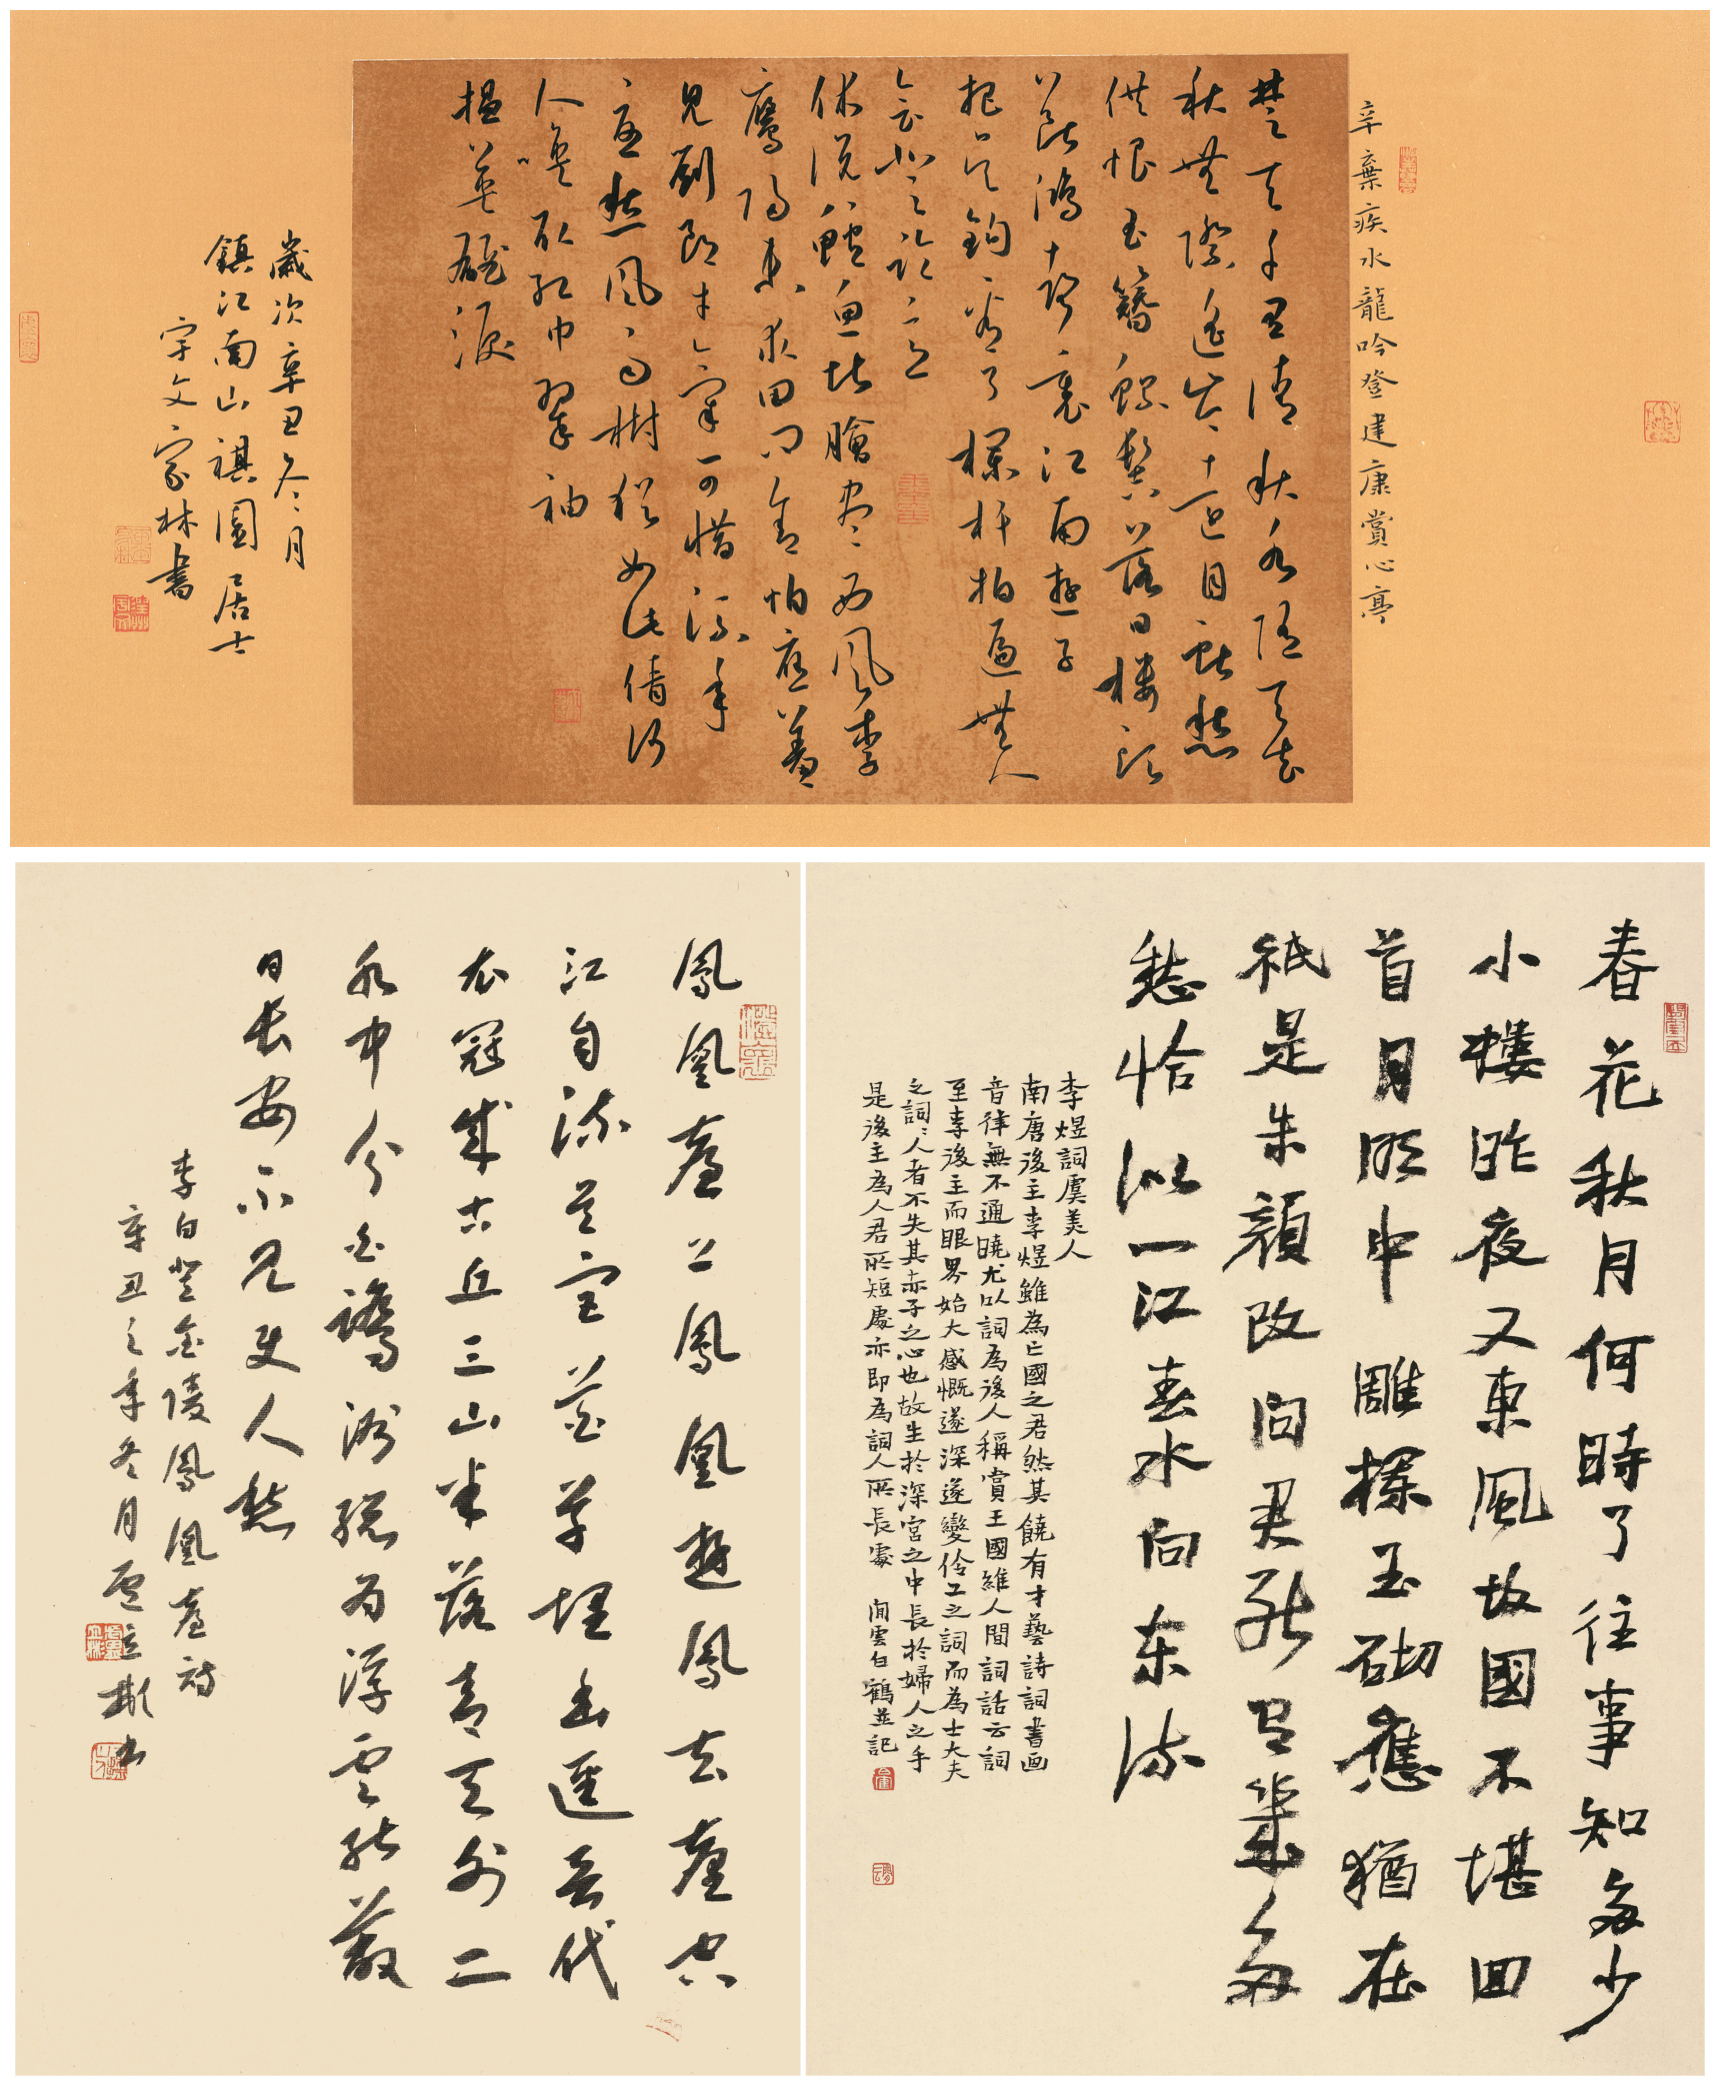 辛棄疾水龍吟登建康賞心亭
楚天千里清秋水隨天去
秋無際遥岑遠目獻愁
供恨玉簪螺髻落日樓頭
斷鴻聲裏江南遊子
把吴鉤看了欄杆拍遍無人
會登臨意
休説鱸魚堪膾盡西風季
鷹歸未求田問舍怕應羞
見劉郎才氣可惜流年
憂愁風雨樹猶如此倩何
人唤取紅巾翠袖
揾英雄淚
歲次辛丑冬月
鎮江南山祺園居士
宇文家林書
春花秋月何時了往事知多少
小樓昨夜又東風故國不堪回
首月明中雕欄玉砌應猶在
祇是朱顏改问君能有幾多
愁恰似一江春水向东流
李煜詞虞美人
南唐後主李煜雖為亡國之君然其饒有才藝詩詞書画
音律無不通曉尤以詞為後人稱賞王國維人間詞話云詞
至李後主而眼界始大感慨遂深遂變伶工之詞而為士大夫
之詞詞人者不失其赤子之心也故生於深宫之中長於婦人之手
是後主為人君所短處亦即為詞人所長處 閒雲白鶴並記
鳳凰臺上鳳凰遊鳳去臺空
江自流吴宫花草埋幽逕晉代
衣冠成古丘三山半落青天外二
水中分白鷺洲總为浮雲能蔽
日長安不見使人愁
李白登金陵鳳凰臺詩
辛丑之年冬月立彬书